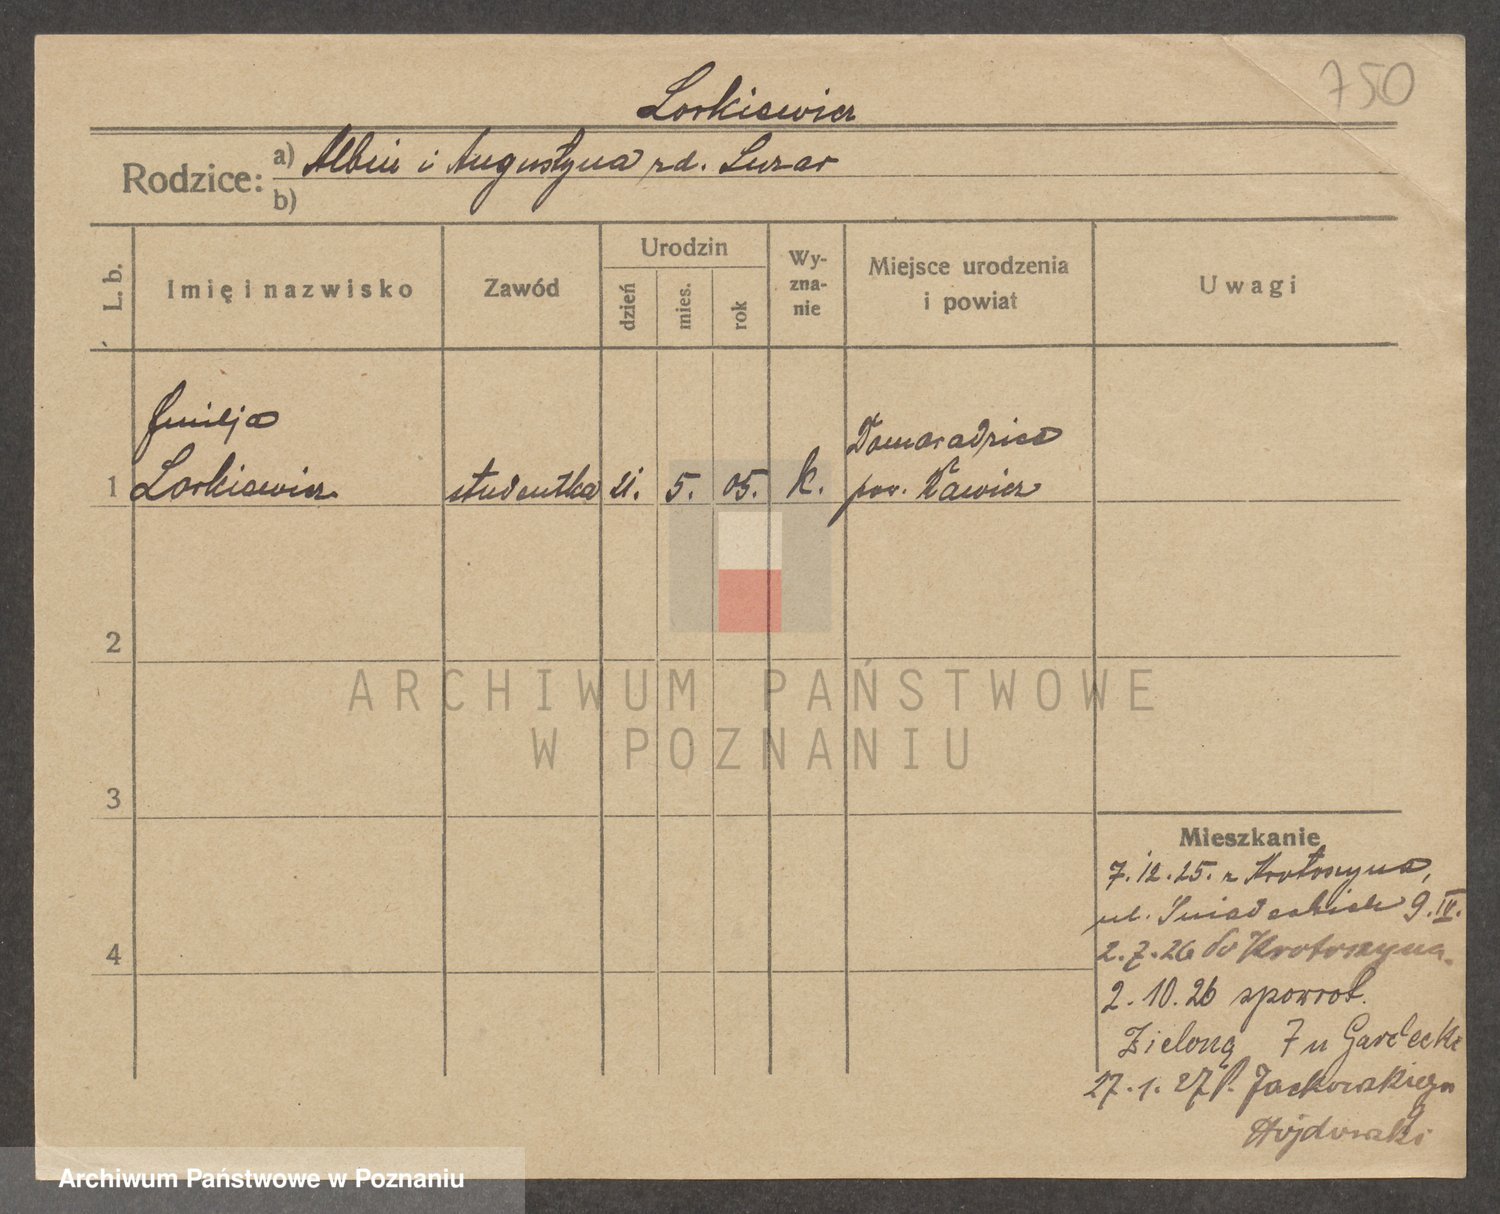 750
Lorkiewicz
Rodzice:
a) Albin i Augustyna zd. Luzar
b)
L. b.
Imię i nazwisko
Zawód
Urodzin
dzień
mies.
rok
Wy-
zna-
nie
Miejsce urodzenia
i powiat
Uwagi
Emilja
1 Lorkiewicz studentka 21. 5. 05. k.
Domaradzice
pow. Rawicz
2
3
4
Mieszkanie
7.12.25. z Krotoszyna,
ul. Śniadeckich 9. IV.
2.7.26 do Krotoszyna.
2.10.26 spowrot.
Zieloną 7 u Gardecki
27.1.27 P. Jackowskiego
ARCHIWUM PAŃSTWOWE
W POZNANIU
Archiwum Państwowe w Poznaniu